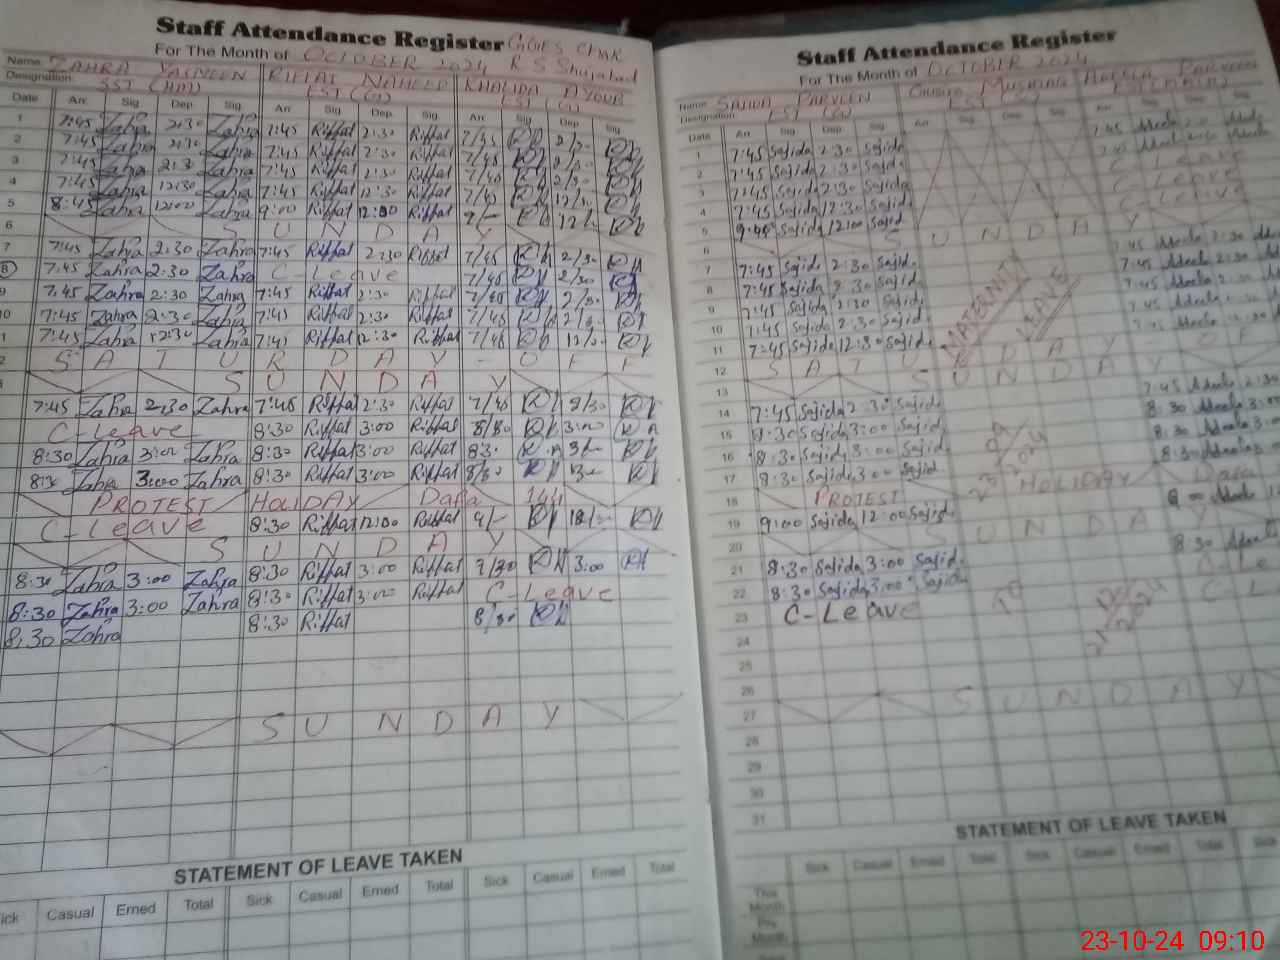 Staff Attendance Register GGES Chak
For The Month of OCTOBER 2024 R S Shujabad
Name ZAHRA YASNEEN RIFFAT NAHEED KHALIDA AYOUB
Designation SST (HM) EST (G) EST (G)
Date Arr. Sig Dep Sig. Arr. Sig. Dep. Sig. Arr. Sig. Dep. Sig
1 7:45 Zahra 2:30 Zahra 7:45 Riffat 2:30 Riffat 7/45 2/30
2 7:45 Zahra 2:30 Zahra 7:45 Riffat 2:30 Riffat 7/45 2/30
3 7:45 Zahra 2:30 Zahra 7:45 Riffat 2:30 Riffat 7/40 2/30
4 7:45 Zahra 12:30 Zahra 7:45 Riffat 12:30 Riffat 7/40 12/30
5 8:45 Zahra 12:00 Zahra 9:00 Riffat 12:00 Riffat 9/- 12/-
6 S U N D A Y
7 7:45 Zahra 2:30 Zahra 7:45 Riffat 2:30 Riffat 7/45 2/30
8 7:45 Zahra 2:30 Zahra C-Leave 7/40 2/30
9 7:45 Zahra 2:30 Zahra 7:45 Riffat 2:30 Riffat 7/40 2/30
10 7:45 Zahra 2:30 Zahra 7:45 Riffat 2:30 Riffat 7/45 2/30
1 7:45 Zahra 12:30 Zahra 7:45 Riffat 12:30 Riffat 7/40 12/30
2 S A T U R D A Y - O F F
S U N D A Y
7:45 Zahra 2:30 Zahra 7:45 Riffat 2:30 Riffat 7/40 2/30
C-Leave 8:30 Riffat 3:00 Riffat 8/30 3:00
8:30 Zahra 3:00 Zahra 8:30 Riffat 3:00 Riffat 8:30
8:30 Zahra 3:00 Zahra 8:30 Riffat 3:00 Riffat 8/30
PROTEST HOLIDAY Dafa 144
C-Leave 8:30 Riffat 12:00 Riffat 9/- 12/-
S U N D A Y
8:30 Zahra 3:00 Zahra 8:30 Riffat 3:00 Riffat 3:00
8:30 Zahra 3:00 Zahra 8:30 Riffat 3:00 Riffat C-Leave
8:30 Zahra 8:30 Riffat 8/30
S U N D A Y
STATEMENT OF LEAVE TAKEN
ick Casual Erned Total Sick Casual Erned Total Sick Casual Erned Total
Staff Attendance Register
For The Month of OCTOBER 2024
Name SAJIDA PARVEEN MUSHTAQ ADEELA PARVEEN
Designation EST (G)
Date Arr. Sig. Dep. Sig.
1 7:45 Sajida 2:30 Sajida 7:45 Adeela
2 7:45 Sajida 2:30 Sajida 7:45 Adeela
3 7:45 Sajida 2:30 Sajida C Leave
4 7:45 Sajida 12:30 Sajida C Leave
5 9:40 Sajida 12:00 Sajid
6 S U N D A Y
7 7:45 Sajida 2:30 Sajid 7:45 Adeela 2:30
8 7:45 Sajida 2:30 Sajid 7:45 Adeela 2:30
9 7:45 Sajida 2:30 Sajid 7:45 Adeela
10 7:45 Sajida 2:30 Sajid 7:45 Adeela
11 7:45 Sajida 12:30 Sajid
MATERNITY
LEAVE
12 S A T U R D A Y O F F
13 S U N D A Y
14 7:45 Sajida 2:30 Sajid 7:45 Adeela 2:30
15 8:30 Sajida 3:00 Sajid 8:30 Adeela 3:00
16 8:30 Sajida 3:00 Sajid 8:30 Adeela
17 8:30 Sajida 3:00 Sajid 8:30 Adeela
18 PROTEST HOLIDAY Dafa
19 9:00 Sajida 12:00 Sajid
20 S U N D A Y
21 8:30 Sajida 3:00 Sajid 8:30 Adeela
22 8:30 Sajida 3:00 Sajida C-Le
23 C-Leave C L
24
25
26
27 S U N D A Y
28
29
30
31
STATEMENT OF LEAVE TAKEN
Sick Casual Erned Total Sick Casual Erned Total Sick
This Month
Pre. Month
23-10-24 09:10